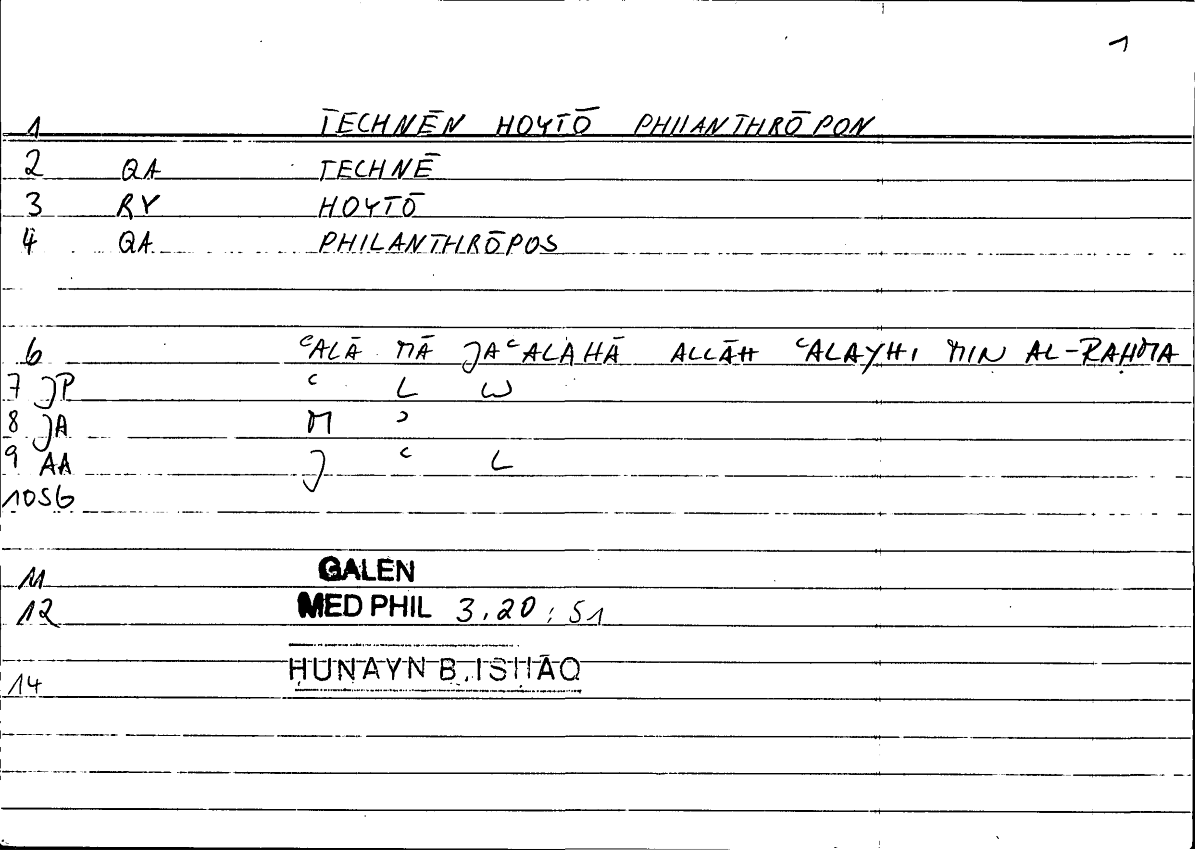 1
1 TECHNĒN HOYTŌ PHILANTHRŌPON
2 QA TECHNĒ
3 RY HOYTŌ
4 QA PHILANTHRŌPOS
6 ʿALĀ MĀ JAʿALAHĀ ALLĀH ʿALAYHI MIN AL-RAḤMA
7 JP ʿ L W
8 JA M ʾ
9 AA J ʿ L
10 SG
11 GALEN
12 MED PHIL 3,20; S1
14 ḤUNAYN B. ISḤĀQ